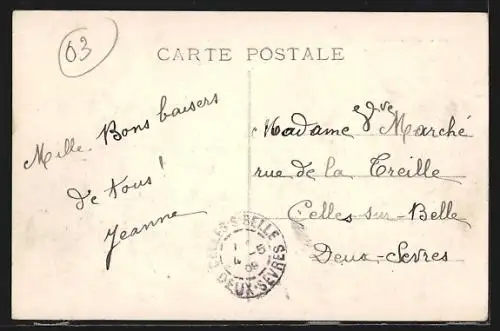 03
CARTE POSTALE
Mille Bons baisers
de tous !
Jeanne
Madame Vve Marché
rue de la Treille
Celles-sur-Belle
Deux-Sèvres
CELLES-S-BELLE
DEUX-SEVRES